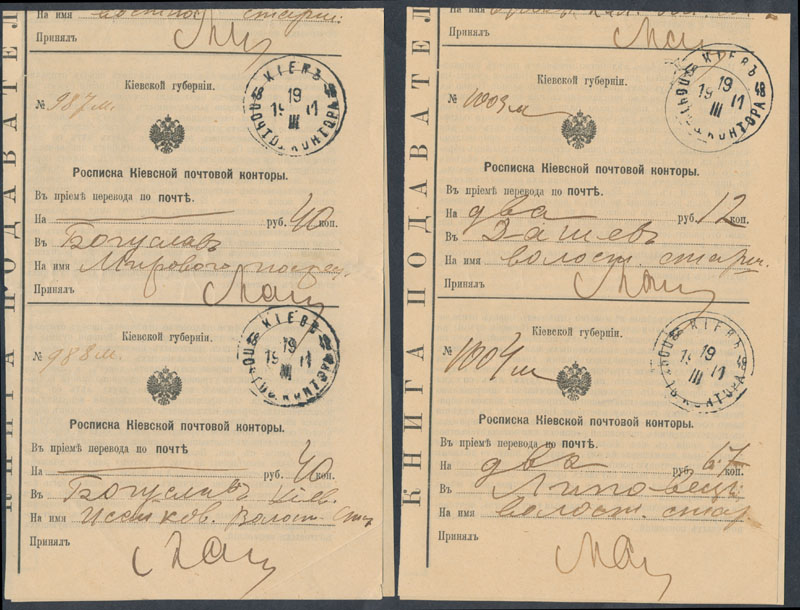 КНИГА ПОДАВАТЕЛ
На имя
Принялъ
КІЕВЪ
19
19 11
III
ПОЧТОВ. КОНТОРА
Кіевской губерніи.
№ 987 м.
Росписка Кіевской почтовой конторы.
Въ пріемѣ перевода по почтѣ.
На руб. 40 коп.
Въ Богуславъ
На имя Мирового
Принялъ
КІЕВЪ
19
19 11
III
ПОЧТОВ. КОНТОРА
Кіевской губерніи.
№ 988 м.
Росписка Кіевской почтовой конторы.
Въ пріемѣ перевода по почтѣ
На руб. 40 коп.
Въ Богуславъ Кіев.
На имя Волост.
Принялъ
КНИГА ПОДАВАТЕЛ
На имя
Принялъ
КІЕВЪ
19
19 11
III
ПОЧТОВ. КОНТОРА
Кіевской губерніи.
№ 1003 м
Росписка Кіевской почтовой конторы.
Въ пріемѣ перевода по почтѣ.
На два руб. 12 коп.
Въ Дашевъ
На имя волост. старш.
Принялъ
КІЕВЪ
19
19 11
III
ПОЧТОВ. КОНТОРА
Кіевской губерніи.
1004 м
Росписка Кіевской почтовой конторы.
Въ пріемѣ перевода по почтѣ.
На два руб. 67 коп.
Въ Липовецъ
На имя волост. стар
Принялъ